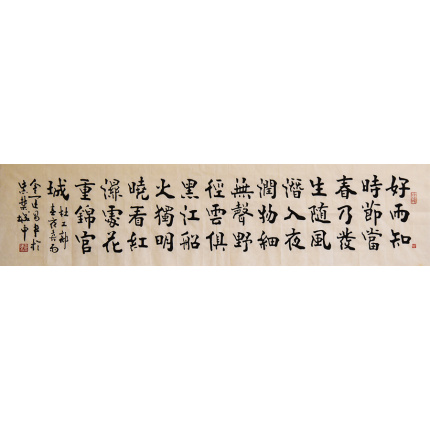 好雨知
時節當
春乃發
生隨風
潛入夜
潤物細
無聲野
徑雲俱
黑江船
火獨明
曉看紅
濕處花
重錦官
城
杜工部
春夜喜雨